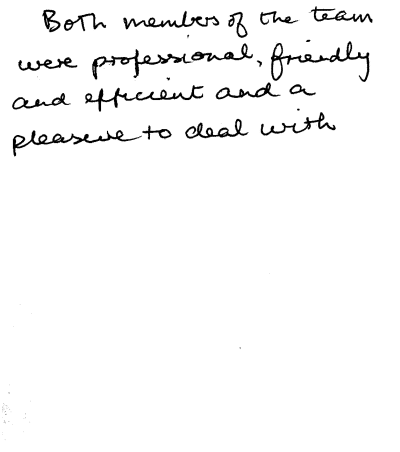 Both members of the team
were professional, friendly
and efficient and a
pleasure to deal with